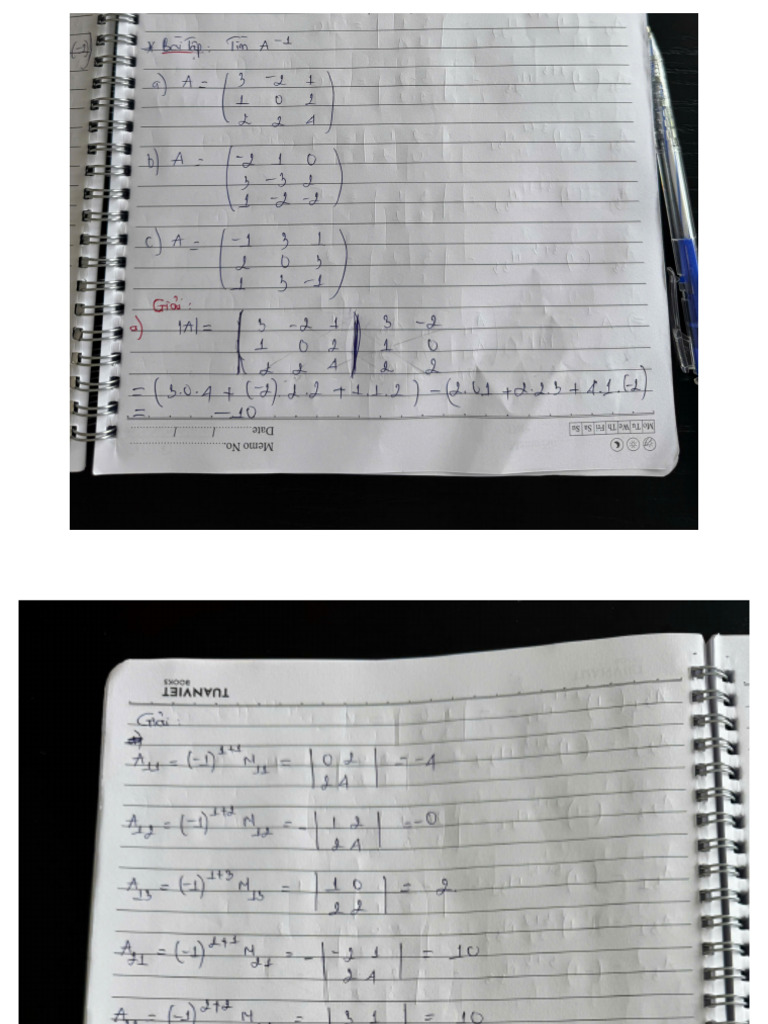 (-1)
* Bài Tập: Tìm A⁻¹
a) A = ( 3 -2 1
1 0 2
2 2 4 )
b) A = ( -2 1 0
3 -3 2
1 -2 -2 )
c) A = ( -1 3 1
2 0 3
1 3 -1 )
Giải:
a) |A| = | 3 -2 1 | 3 -2
1 0 2 | 1 0
2 2 4 | 2 2
= (3.0.4 + (-2).2.2 + 1.1.2) - (2.0.1 + 2.2.3 + 4.1.(-2)
= -10
Memo No.
Date / /
Mo Tu We Th Fri Sa Su
TUANVIET
BOOKS
Giải:
a)
A₁₁ = (-1)¹⁺¹ M₁₁ = | 0 2
2 4 | = -4
A₁₂ = (-1)¹⁺² M₁₂ = - | 1 2
2 4 | = -0
A₁₃ = (-1)¹⁺³ M₁₃ = | 1 0
2 2 | = 2.
A₂₁ = (-1)²⁺¹ M₂₁ = - | -2 1
2 4 | = 10
= (-1)²⁺² M = | 3 1 | = 10